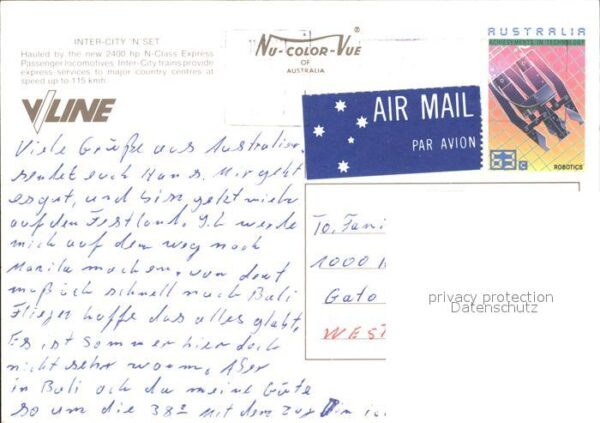 INTER-CITY 'N' SET
Hauled by the new 2400 hp N-Class Express
Passenger locomotives. Inter-City trains provide
express services to major country centres at
speed up to 115 kmh.
V/LINE
NU-COLOR-VUE®
OF
AUSTRALIA
AIR MAIL
PAR AVION
AUSTRALIA
ACHIEVEMENTS IN TECHNOLOGY
63c
ROBOTICS
Viele Grüße aus Australien
sendet euch Hans. Mir geht
es gut, und bin
auf dem Festland. Ich werde
mich auf dem weg nach
Manila machen, von dort
muß ich schnell nach Bali
Fliegen hoffe das alles glabt,
Es ist Sommer hier doch
nicht sehr warm, Aber
in Bali och du meine Güte
so um die 38° mit dem Zug
To, Fami
1000
Gato
WEST
privacy protection
Datenschutz